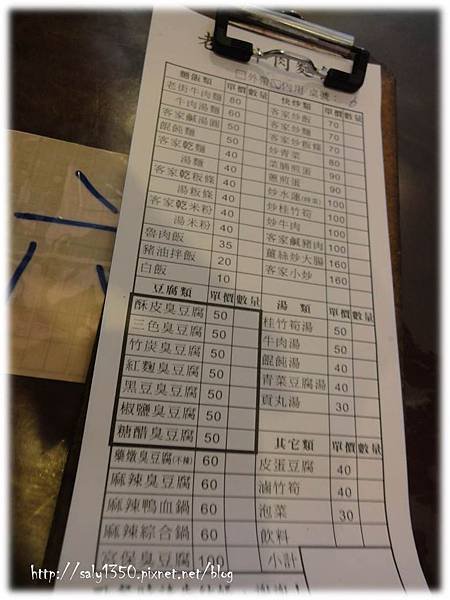 老 牛肉麵
外帶 內用 桌號:
麵飯類 單價 數量
老街牛肉麵 80
牛肉湯麵 60
客家鹹湯圓 50
餛飩麵 50
客家乾麵 40
湯麵 40
客家乾粄條 40
湯粄條 40
客家乾米粉 40
湯米粉 40
魯肉飯 35
豬油拌飯 20
白飯 10
快炒類 單價 數量
客家炒飯 70
客家炒麵 70
客家炒粄條 70
炒青菜 80
菜脯煎蛋 90
蔥煎蛋 90
炒水蓮(時菜) 100
炒桂竹筍 100
炒牛肉 100
客家鹹豬肉 100
薑絲炒大腸 160
客家小炒 160
豆腐類 單價 數量
酥皮臭豆腐 50
三色臭豆腐 50
竹炭臭豆腐 50
紅麴臭豆腐 50
黑豆臭豆腐 50
椒鹽臭豆腐 50
糖醋臭豆腐 50
藥燉臭豆腐(不辣) 60
麻辣臭豆腐 60
麻辣鴨血鍋 60
麻辣綜合鍋 60
宮保臭豆腐 100
湯類 單價 數量
桂竹筍湯 50
牛肉湯 50
餛飩湯 40
青菜豆腐湯 40
貢丸湯 30
其它類 單價 數量
皮蛋豆腐 40
滷竹筍 40
泡菜 30
飲料
小計
六
http://saly1350.pixnet.net/blog